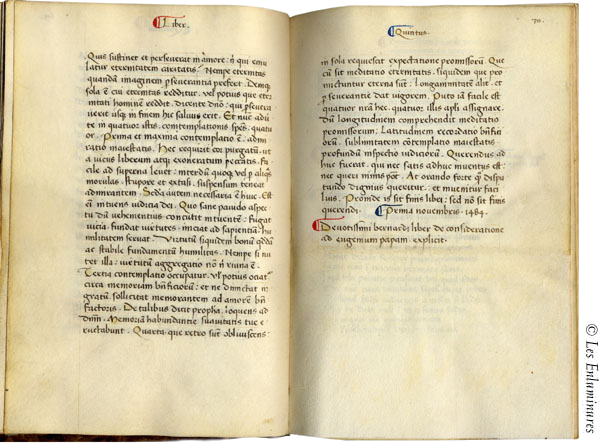 Liber.
Quis sustinet et perseverat in amore: n̄ qui emu
latur eternitatem caritatis? Nempe eternitas
quandā imaginem pseverantia prefert. Deniq̄
sola ē cui eternitas redditur: vel potius que eter
nitati hominē reddit. dicente dn̄o: qui psevera
verit usq̨ in finem hic salvus erit. Et nūc advī
te in quatuor istis contemplationis spēs quatu
or. Prima et maxima contemplatio ē. admi
ratio maiestatis. Hec requirit cor purgatū. ut
a viciis liberum atq̨ exoneratum peccatis. fa
cile ad superna levet: interdū quoq̨ vel p aliq̄s
morulas. stupore et extasi. suspensum teneat
admirantem. Secūda autem necessaria ē huic. Est
em̄ intuens iudicia dei. Quo sane pavido aspec
tu dū vehementius concutit intuentē: fugat
vicia. fundat virtutes. iniciat ad sapientiā. hu
militatem servat. Virtutū siquidem bonū qd̄dā
ac stabile fundamentū humilitas. Nempe si nu
tet illa: virtutū aggregatio nō n̄ ruina ē.
Tertia contemplatio occupatur. vl̄ potius ociatur
circa memoriam bn̄ficiorū: et ne dimittat in
gratū. sollicitat memorantem ad amorē bn̄
factoris. De talibus dicit propha. loquens ad
dn̄m. Memoriā habundantie suavitatis tue e
ructabunt. Quarta. que retro sūt obliviscens.
Quintus.
70.
in sola requiescat expectatione promissorū. Que
cū sit meditatio eternitatis. siquidem que pro
mictuntur eterna sūt: longanimitatē alit. et
pseverantie dat vigorem. Puto iā facile est
quatuor nr̄a hec. quatuor illis apli assignare.
Dum longitudinem comprehendit meditatio
promissorum. Latitudinem recordatio bn̄fici
orū. sublimitatem cōtemplatio maiestatis
profundū inspectio iudiciorū. Querendus ad
huc fuerat. qui nec satis adhuc inventus est:
nec queri nimis pōt. At orando forte q̄ dispu
tando dignius queritur. et invenitur faci
lius. Proinde is sit finis libri: sed nō sit finis
querendi. Prima novembris. 1484.
Devotissimi bernardi liber de consideratione
ad eugenium papam. explicit.
© Les Enluminures